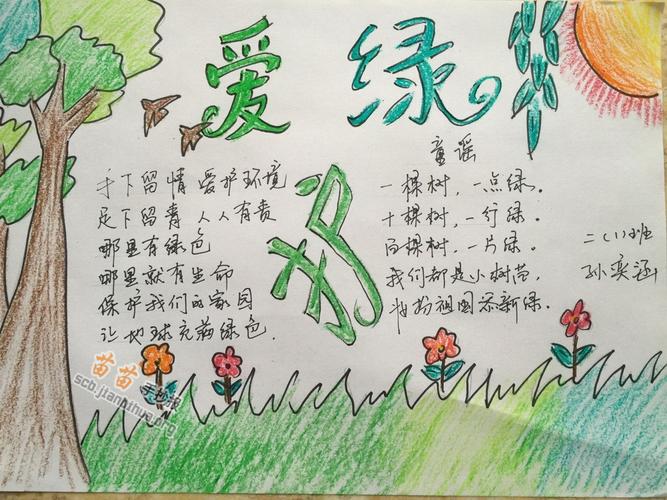 爱护绿
手下留情 爱护环境
足下留青 人人有责
哪里有绿色
哪里就有生命
保护我们的家园
让地球充满绿色.
童谣
一棵树，一点绿。
十棵树，一行绿。
百棵树，一片绿。
我们都是小树苗，
妆扮祖国添新绿。
二(1)班
孙奕涵
苗苗
手抄报
scb.jianhihua.org